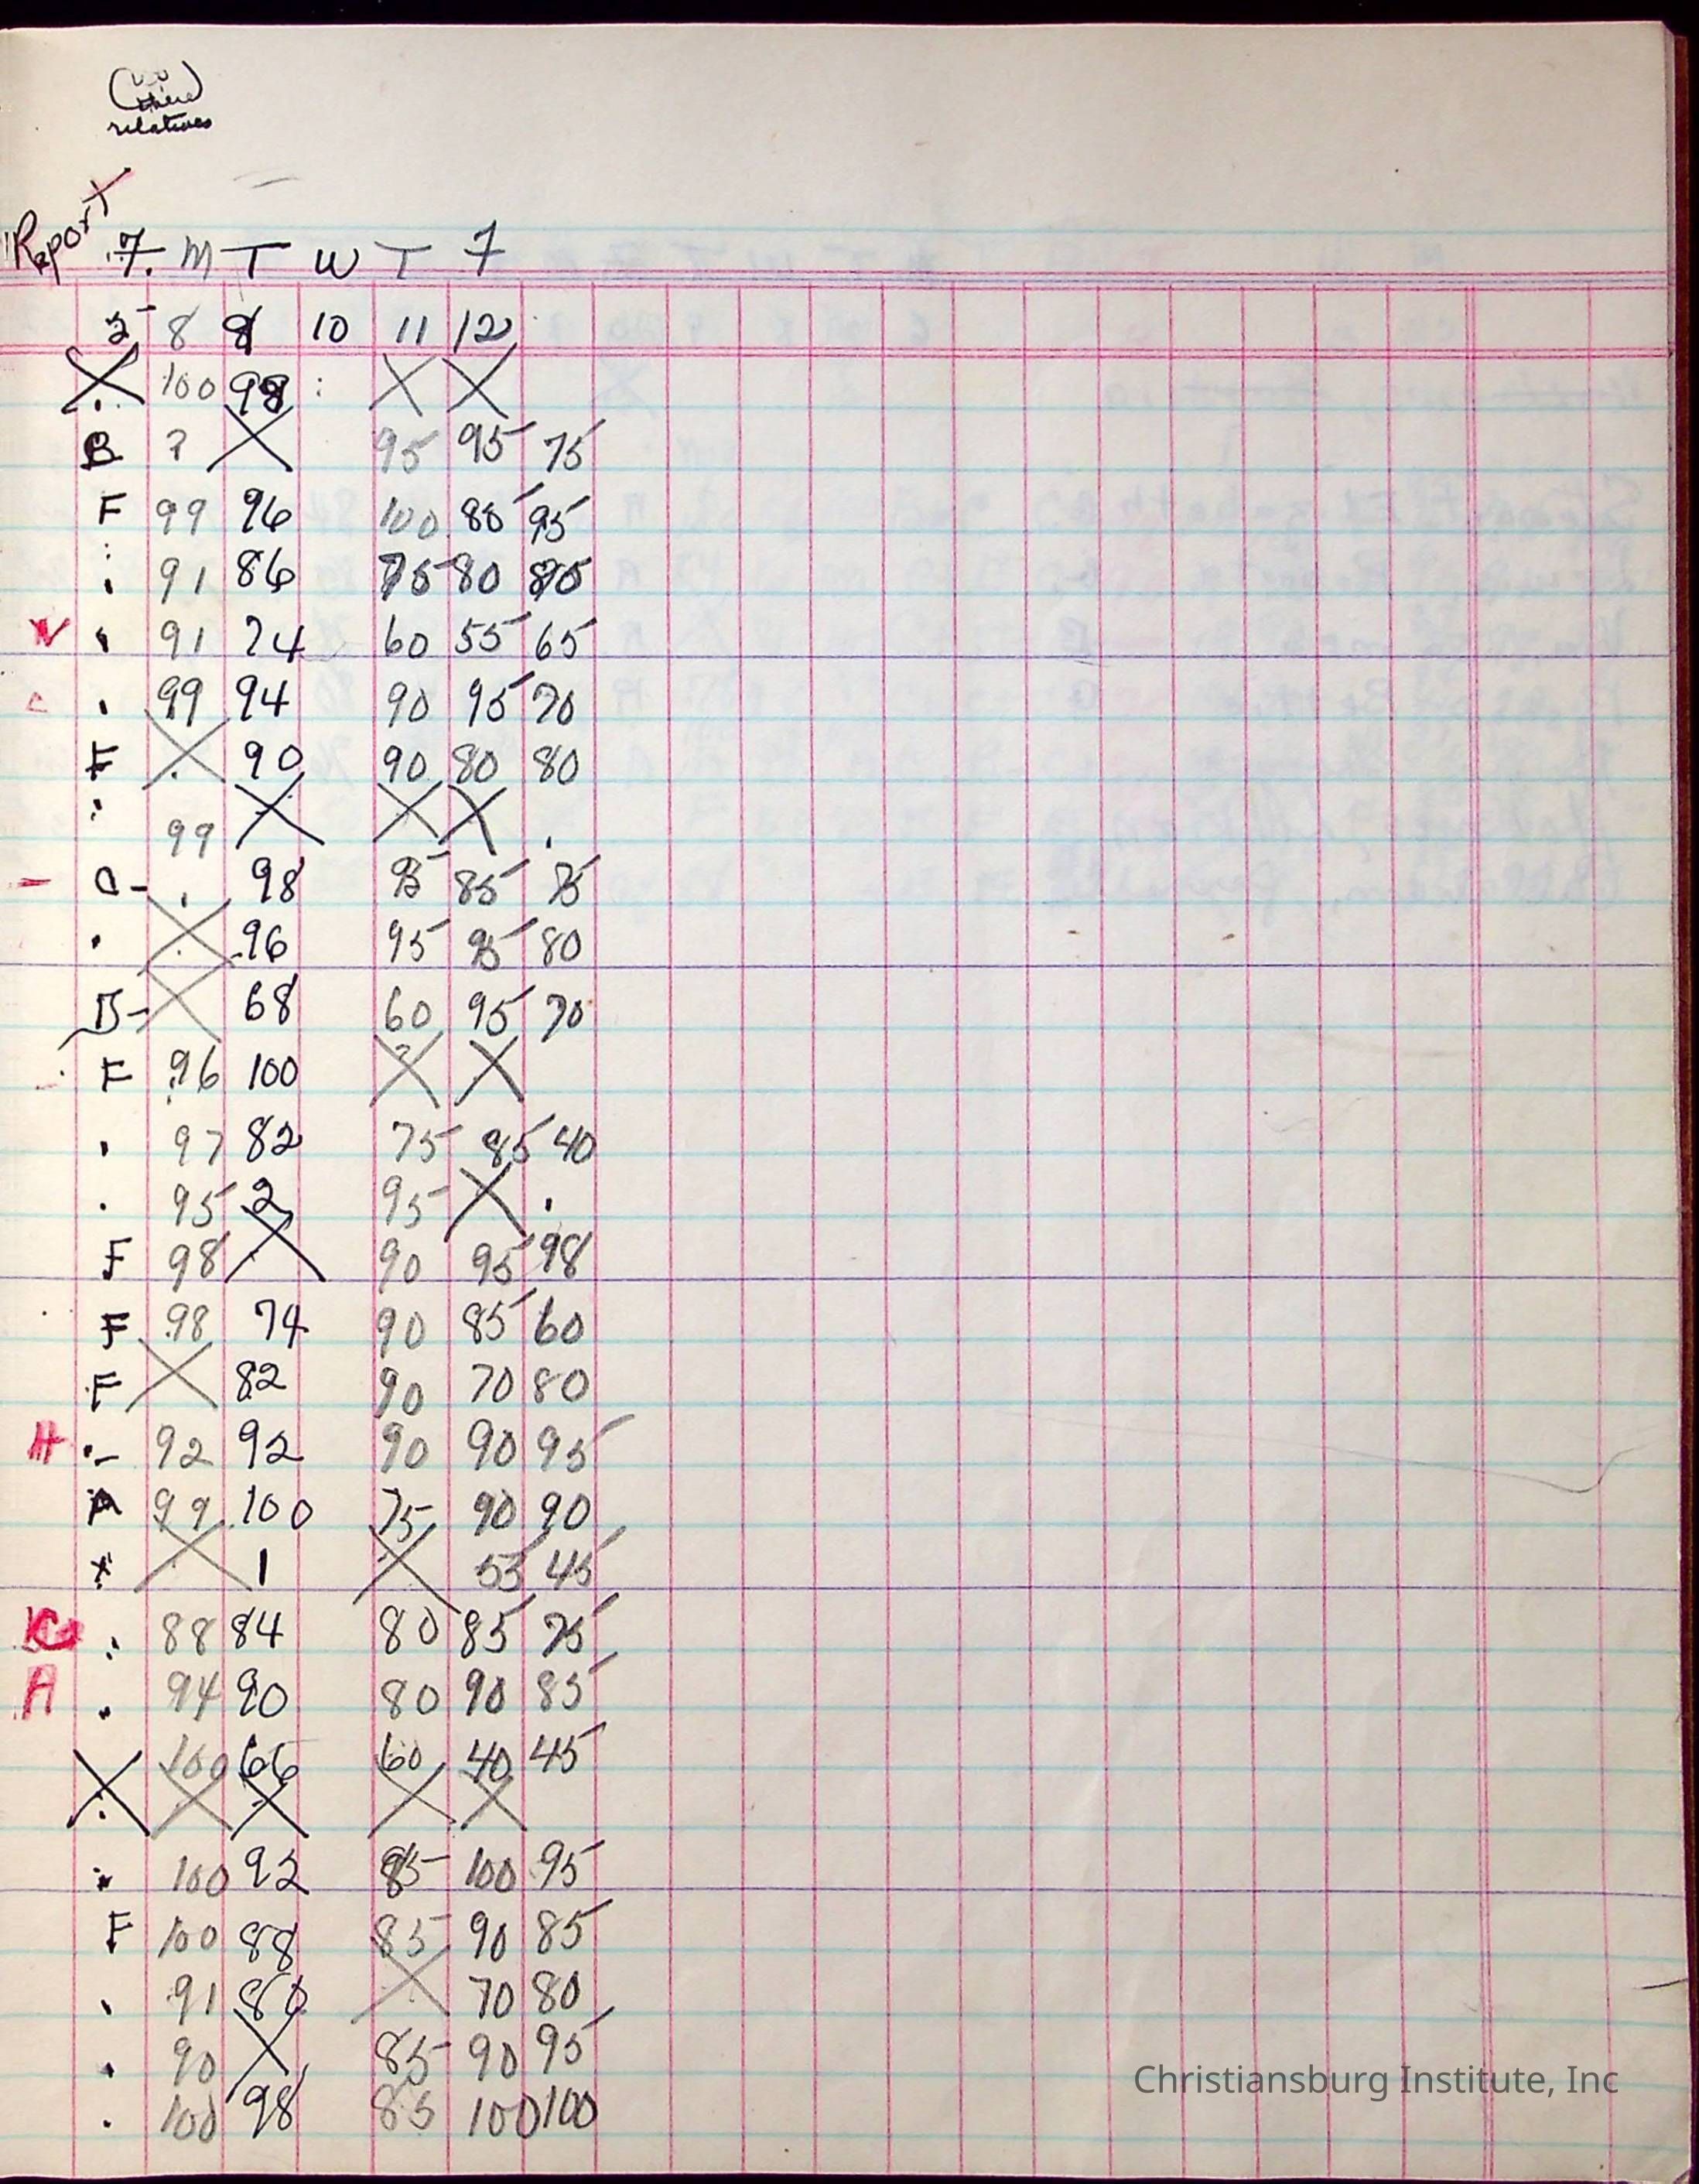 there
relatives
Report F. M T W T F
5 8 9 10 11 12
X 100 98 X X
B ? X 95 95 75
F 99 96 100 85 95
91 86 75 80
91 74 60 55 65
99 94 90 95 70
F X 90 90 80 80
99 X X X
98 95 85 75
X 96 95 95 80
B- X 68 60 95 70
F 96 100 X X
97 82 75 85 40
95 2 95 X
F 98 X 90 95 98
F 98 74 90 85 60
F X 82 90 70 80
H 92 92 90 90 95
A 99 100 75 90 90
X X 1 X 55 45
88 84 80 85 75
A 94 90 80 90 85
100 66 60 40 45
X X X X X
100 92 85 100 95
F 100 88 85 90 85
91 80 X 70 80
90 X 85 90 95
100 98 85 100 100
Christiansburg Institute, Inc